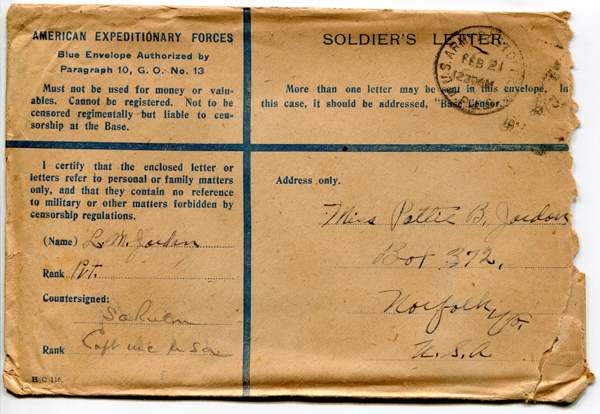 AMERICAN EXPEDITIONARY FORCES
Blue Envelope Authorized by
Paragraph 10, G. O. No. 13
Must not be used for money or valu-
ables. Cannot be registered. Not to be
censored regimentally but liable to cen-
sorship at the Base.
SOLDIER'S LETTER
U.S. ARMY
FEB 21
More than one letter may be sent in this envelope. In
this case, it should be addressed, "Base Censor.
I certify that the enclosed letter or
letters refer to personal or family matters
only, and that they contain no reference
to military or other matters forbidden by
censorship regulations.
(Name) L. M. Jordan
Rank Pvt.
Countersigned:
Rank Capt
H C 116.
Address only.
Miss Pattie B. Jordon
Box 372,
Norfolk, Va.
U. S. A